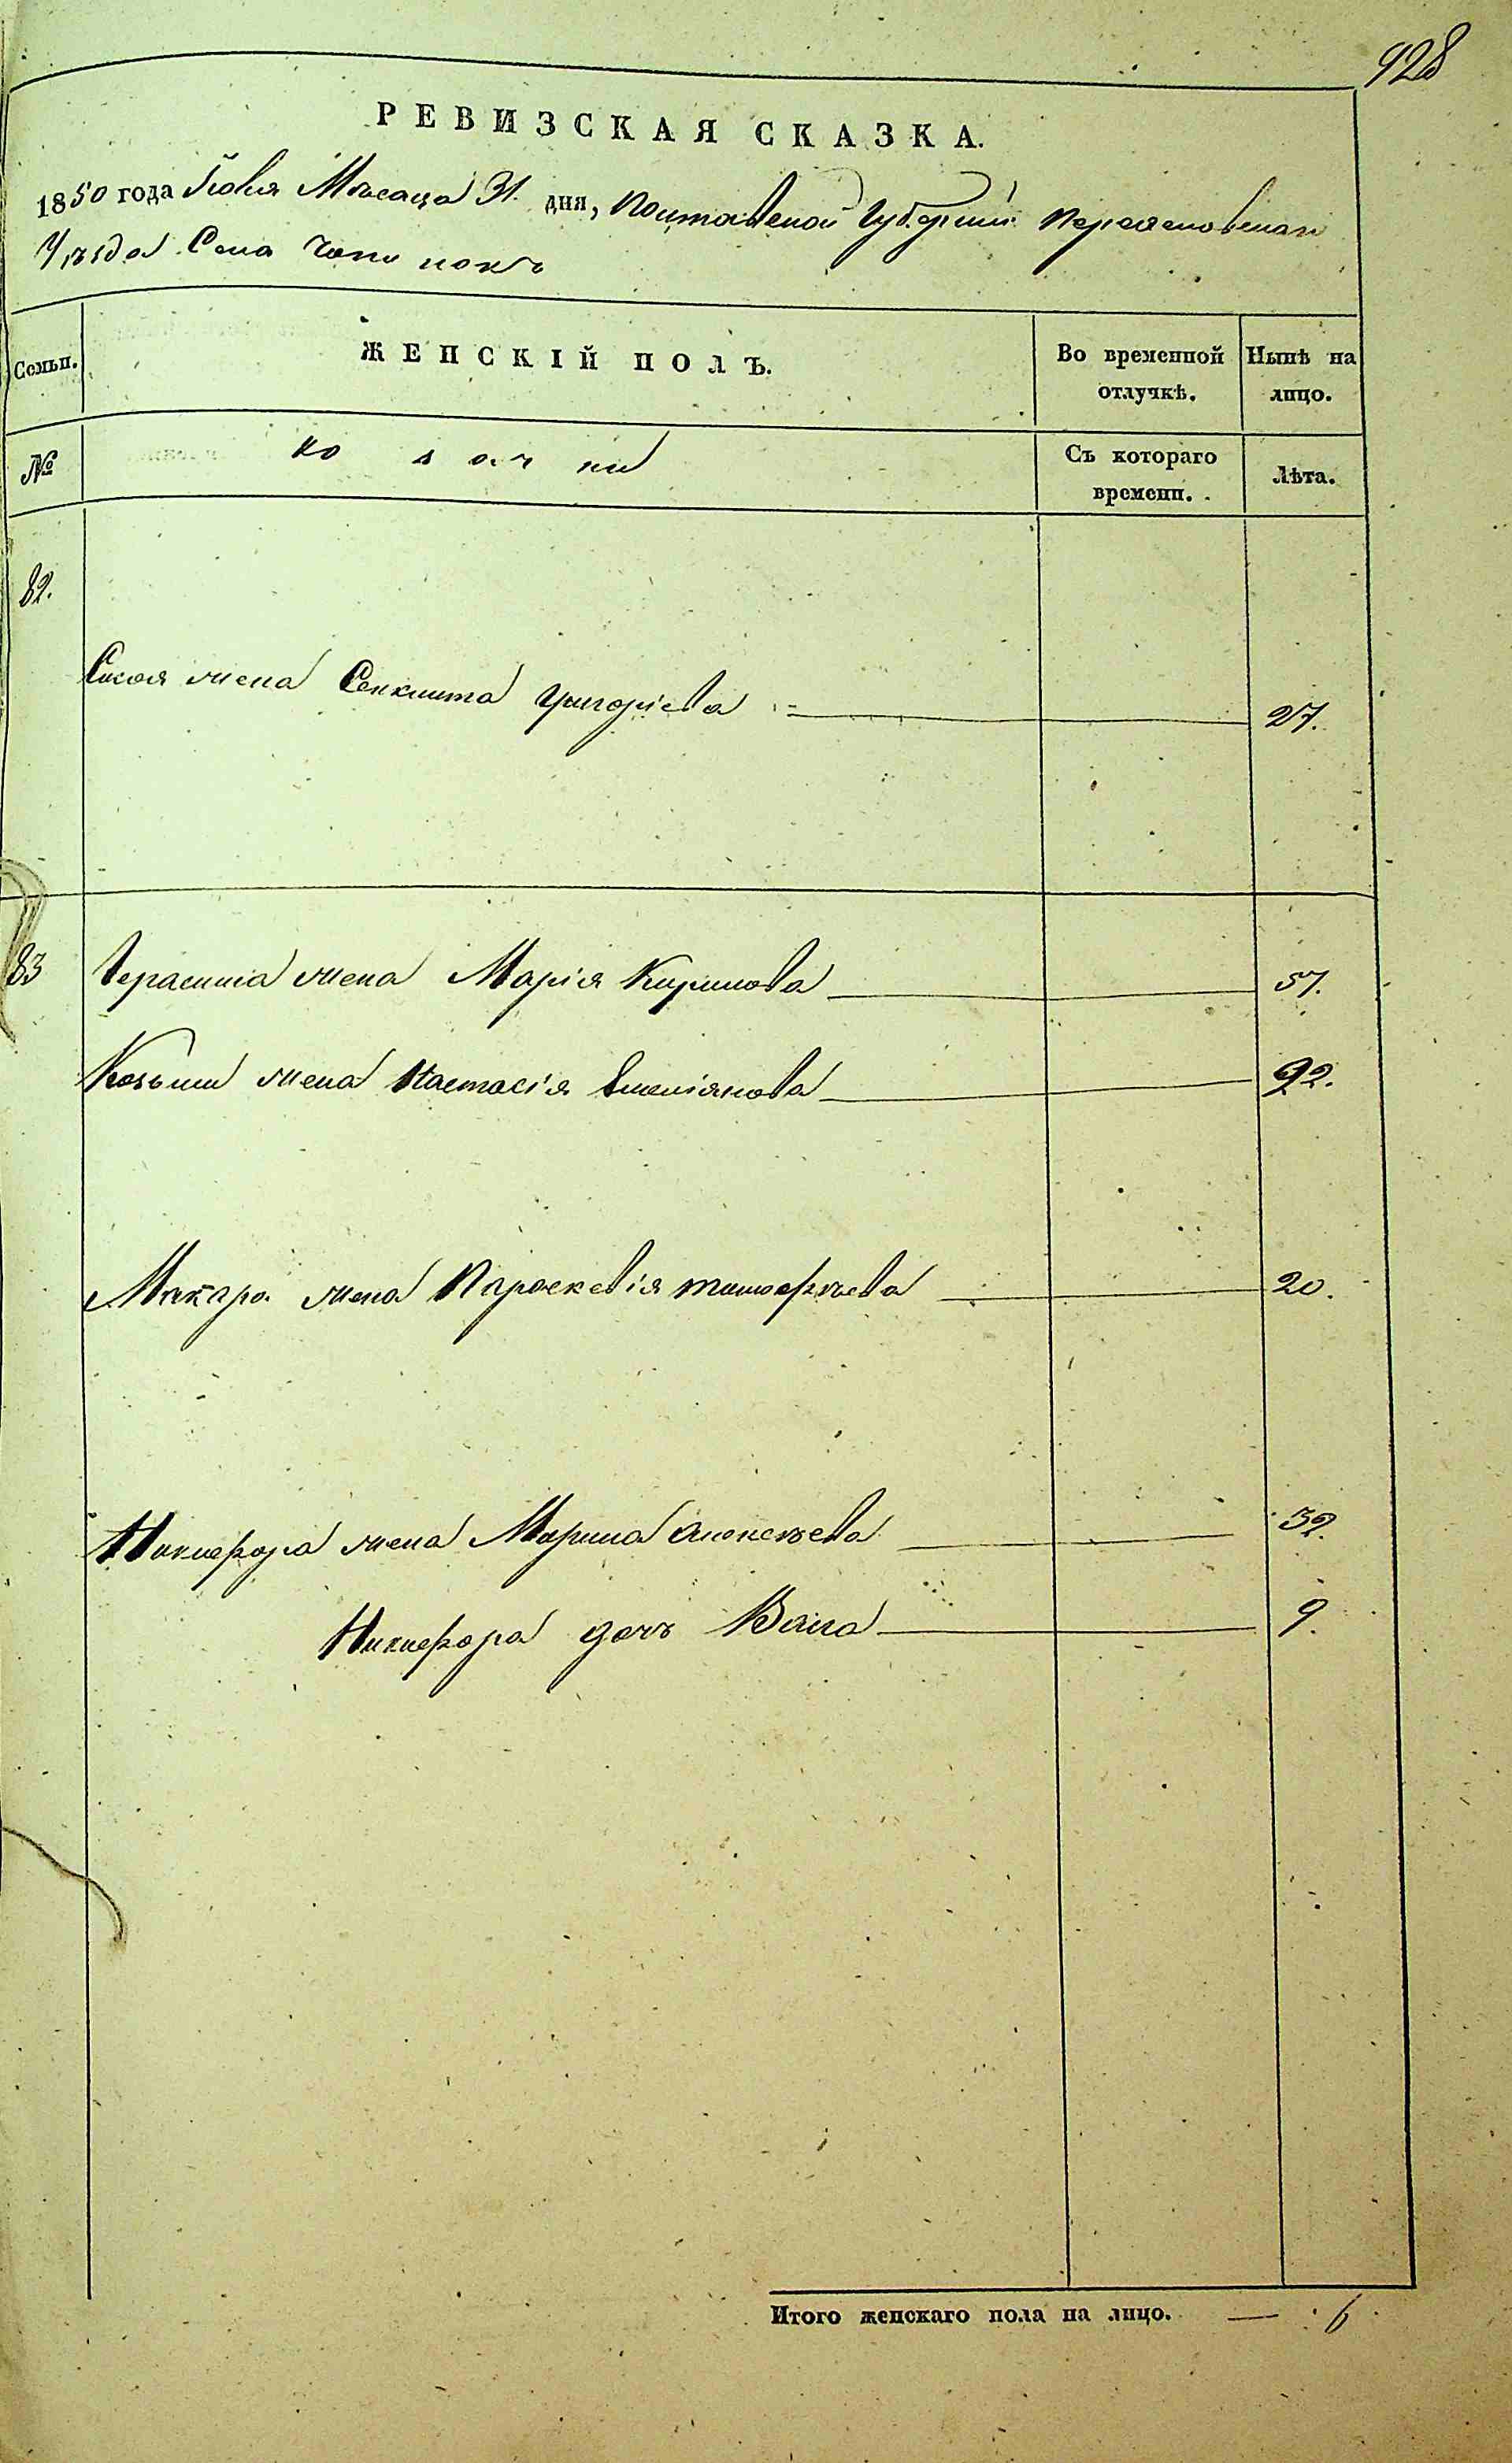 928
РЕВИЗСКАЯ СКАЗКА.
1850 года Июля Месяца 31. дня, Полтавской Губернии Переяславскаго
Уѣзда Села
Семьи. ЖЕНСКІЙ ПОЛЪ. Во временной отлучкѣ. Нынѣ на лицо.
№ козачки Съ котораго времени. Лѣта.
82.
Сысоя жена Секлита Григоріева 27.
83 Герасима жена Марія Кирилова 57.
Козьми жена Настасія Емеліянова 92.
Макара жена Параскевія Тимофѣева 20.
Никифора жена Марина Алексѣева 32.
Никифора дочь 9.
Итого женскаго пола на лицо. — 6